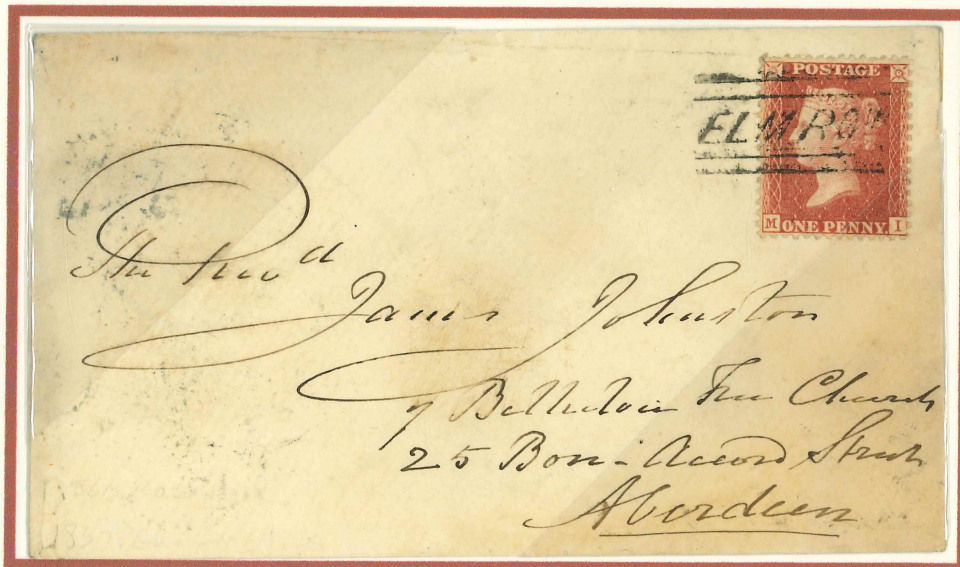 POSTAGE
ELM ROW
M ONE PENNY. I
The Revd
James Johnston
of Belhelvie Free Church
25 Bon-Accord Street
Aberdeen